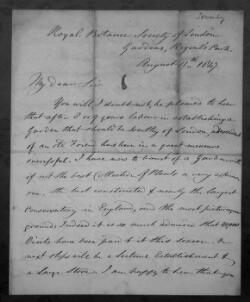 Royal Botanic Society of London
Gardens, Regents Park
August 11th 1847
My dear Sir
You will I doubt not, be pleased to hear
that after 7 or 8 years labour in establishing a
Garden that should be worthy of London,
of its has been in a great measure
successful. I have now to boast of a Garden and
if not the best Collection of Plants a very extensive
one. The best constructed & nearly the largest
Conservatory in England, and the most picturesque
grounds. Indeed it is so much admired that
Visits have been paid to it this season. Our
next step will be a Lecture Establishment &
a Large Stove. I am happy to hear that you